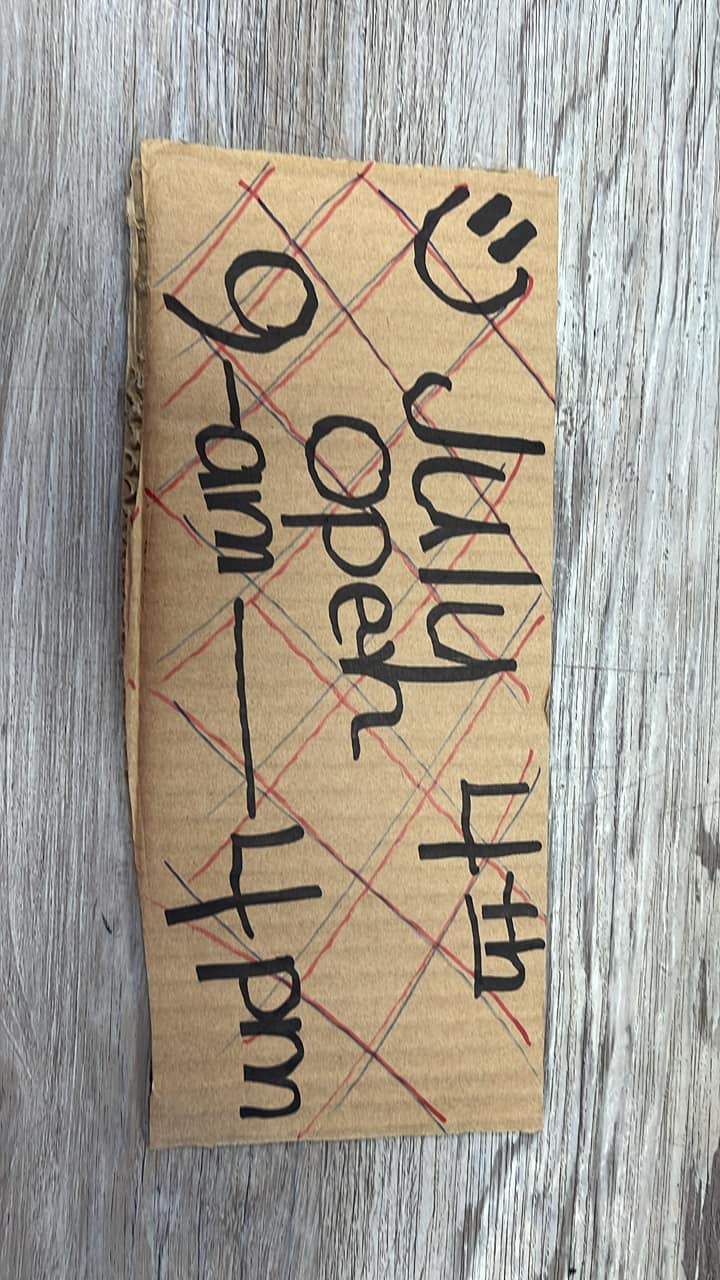 July 4th
open
9-am — 4pm